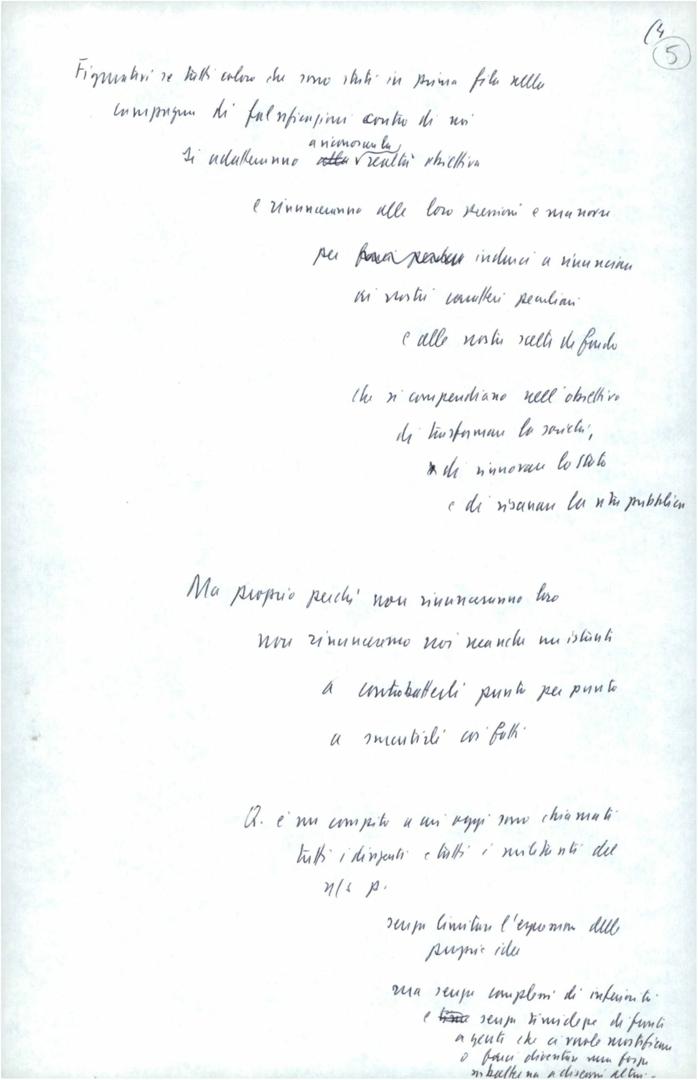 (4
5
Figuratevi se tutti coloro che sono stati in prima fila nella
campagna di falsificazioni contro di noi
a riconoscere la
si adatteranno alla realtà obiettiva
e rinunceranno alle loro pressioni e manovre
per indurci a rinunciare
ai nostri caratteri peculiari
e alle nostre scelte di fondo
che si compendiano nell'obiettivo
di trasformare la società,
di rinnovare lo Stato
e di risanare la vita pubblica
Ma proprio perché non rinunceranno loro
non rinunceremo noi neanche un istante
a controbatterli punto per punto
a smentirli coi fatti
Q. è un compito a cui oggi sono chiamati
tutti i dirigenti e tutti i militanti del
n/s p.
senza limitare l'espressione delle
proprie idee
ma senza complessi di inferiorità
e senza timidezze di fronte
a gente che ci vuole mortificare
o farci diventare una forza
subalterna a disegni altrui.